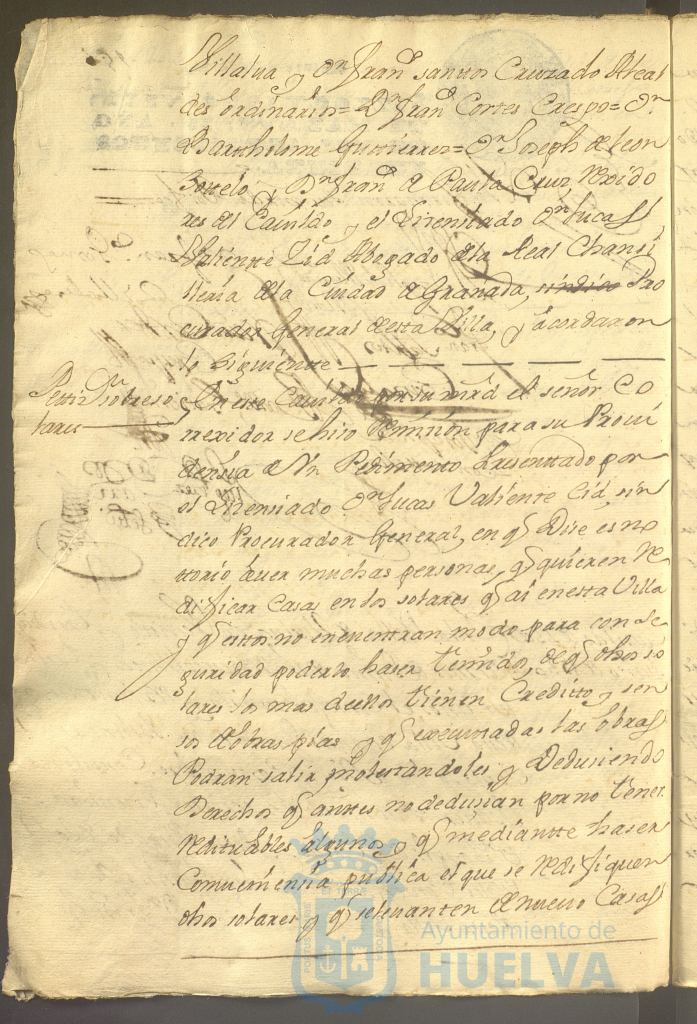 Villalva, y Dn Franco santtos Cruzado Alcal
des ordinarios= Dn Franco Cortes Crespo= Dn
Barttholome Guttierrez= Dn Joseph de Leon
Sottelo, y Dn Franco de Paula Cruz, Rexido
res del Cavildo, y el Lizenciado Dn Lucas
Valientte Zid Abogado dela Real Chansi
lleria dela Ciudad de Granada, sindico Pro
curador General de esta Villa, y acordaron
lo siguiente
Pettizn sobre so
lares
En este Cavildo por su mrd el señor Co
rrexidor se hiso Remision para su Provi
densia de Vn Pedimento Presenttado por
el Lizensiado Dn Lucas Valiente Cid, sin
dico Procurador General, en q Dise es no
ttorio aver muchas personas, q quieren Re
dificar Casas en los solares q ai en esta Villa
y q estos no encuentran modo para con se
guridad poderlo haser temidos, de q dhos so
lares los mas de ellos tienen Creditto, y sen
sos de obras pias y q executtadas las obras
Podran salir molestandoles y Dedusiendo
Derechos q anttes no dedusian por no tener
Redituables algunos, y q mediantte haser
Combeniensia publica el que se Redifiquen
dhos solares y q se levanten de nuevo Casas
Ayuntamiento de
HUELVA